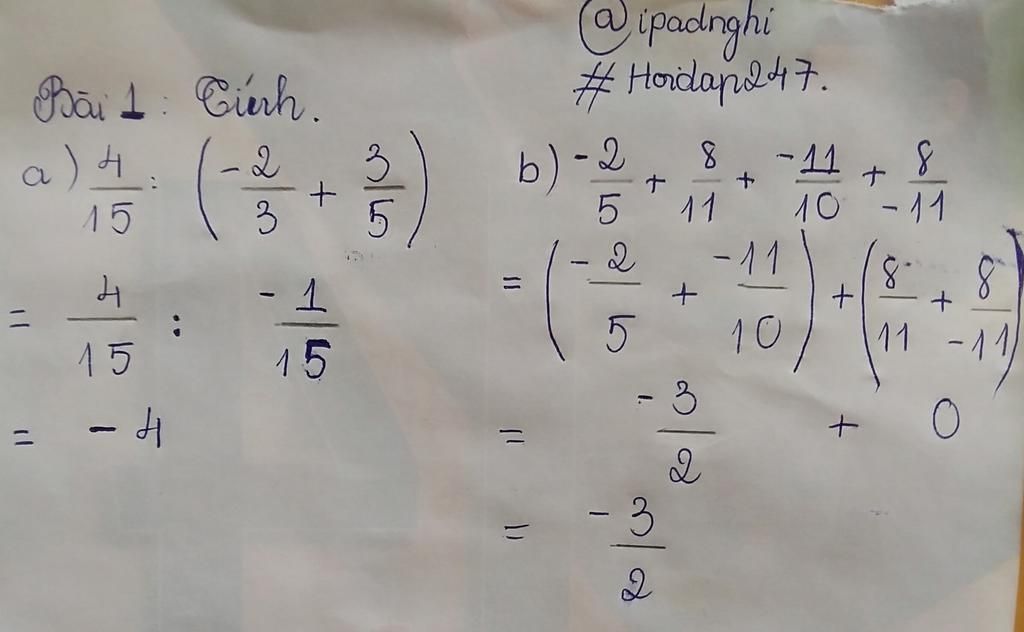 @ipadnghi
#Hoidap247.
Bài 1: Tính.
a) 4/15 : (-2/3 + 3/5)
= 4/15 : -1/15
= -4
b) -2/5 + 8/11 + -11/10 + 8/-11
= (-2/5 + -11/10) + (8/11 + 8/-11)
= -3/2 + 0
= -3/2